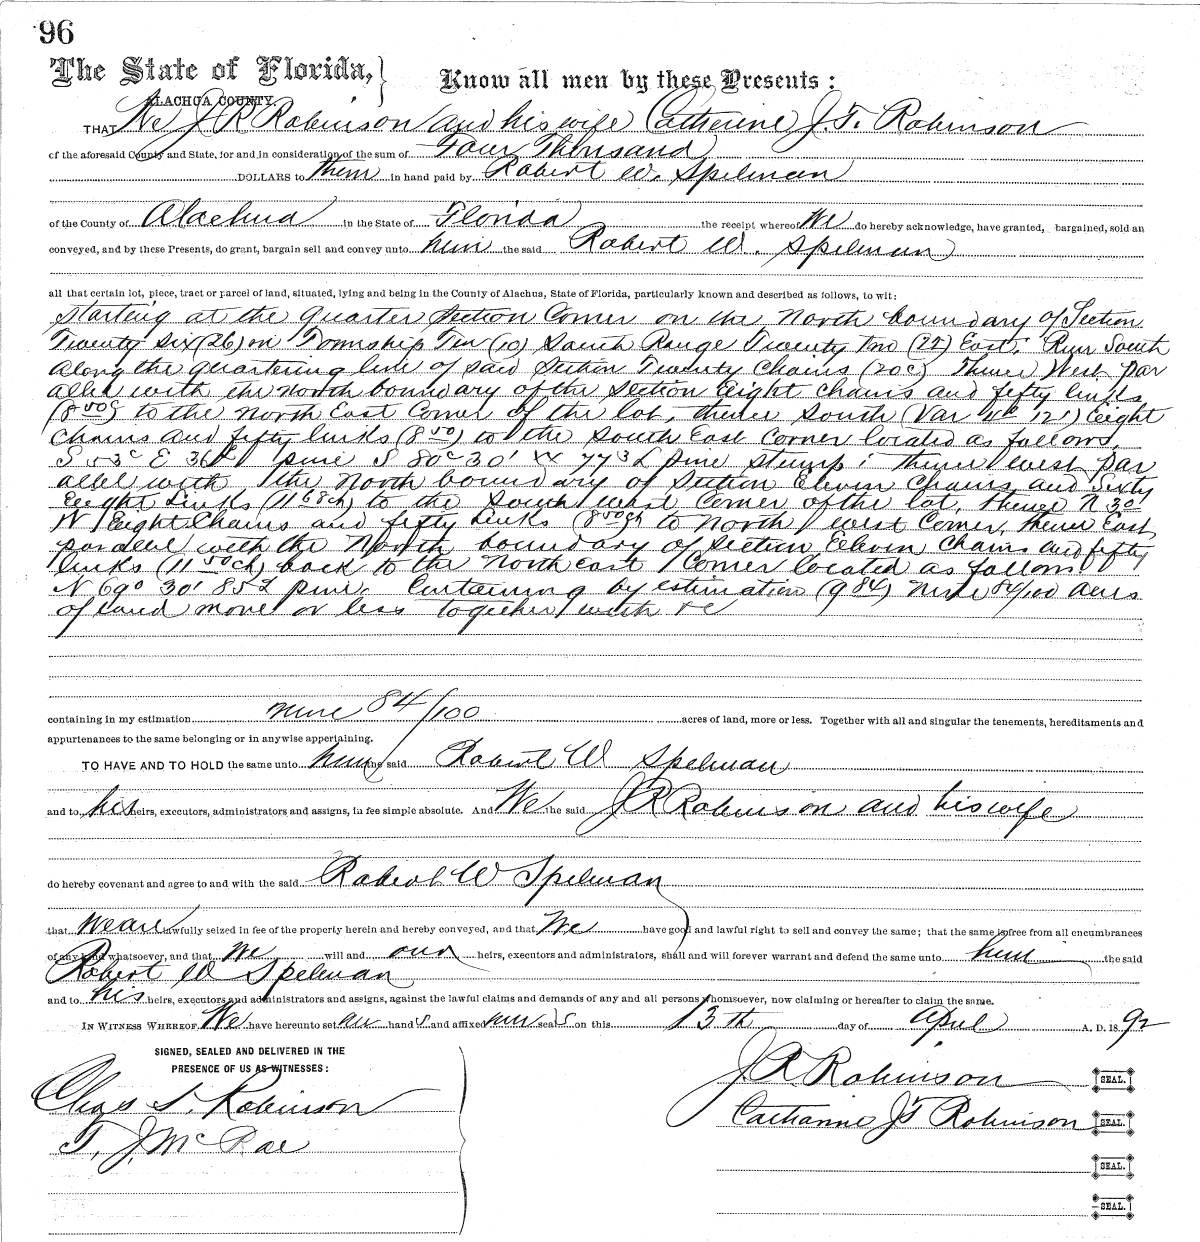 96
The State of Florida, } Know all men by these Presents :
ALACHUA COUNTY.
THAT We J R Robinson and his wife Catherine J. T. Robinson
of the aforesaid County and State, for and in consideration of the sum of Four Thousand
DOLLARS to them in hand paid by Robert W. Spelman
of the County of Alachua in the State of Florida the receipt whereof We do hereby acknowledge, have granted, bargained, sold an
conveyed, and by these Presents, do grant, bargain sell and convey unto him the said Robert W. Spelman
all that certain lot, piece, tract or parcel of land, situated, lying and being in the County of Alachua, State of Florida, particularly known and described as follows, to wit:
Starting at the Quarter Section Corner on the North boundary of Section
Twenty Six (26) in Township Ten (10) South Range Twenty Two (22) East. Run South
along the quartering line of said Section Twenty Chains (20c) Thence West par
allel with the north boundary of the Section Eight Chains and fifty links
(8 50c) to the North East Corner of the lot, thence South (Var 4° 12') Eight
Chains and fifty links (8 50) to the South East Corner located as follows,
S 53° E 36 L pine S 80° 30' W 77 3 L pine stump; thence West par
allel with the North boundary of Section Eleven Chains and Sixty
Eight Links (11 68ch) to the South West Corner of the lot, thence N 3°
W Eight Chains and fifty Links (8 50ch to North West Corner, thence East
parallel with the North boundary of Section Eleven Chains and fifty
links (11 50ch) back to the north east Corner located as follows
N 69° 30' 85 L pine. Containing by estimation (9 84) Nine 84/100 acres
of land more or less together with &c
containing in my estimation nine 84/100 acres of land, more or less. Together with all and singular the tenements, hereditaments and
appurtenances to the same belonging or in anywise appertaining.
TO HAVE AND TO HOLD the same unto him the said Robert W Spelman
and to his heirs, executors, administrators and assigns, in fee simple absolute. And We the said J R Robinson and his wife
do hereby covenant and agree to and with the said Robert W Spelman
that we are lawfully seized in fee of the property herein and hereby conveyed, and that We have good and lawful right to sell and convey the same; that the same is free from all encumbrances
of any kind whatsoever, and that We will and our heirs, executors and administrators, shall and will forever warrant and defend the same unto him the said
Robert W Spelman
and to his heirs, executors and administrators and assigns, against the lawful claims and demands of any and all persons whomsoever, now claiming or hereafter to claim the same.
IN WITNESS WHEREOF, We have hereunto set our hands and affixed our seals on this 13th day of April A. D. 1892
SIGNED, SEALED AND DELIVERED IN THE
PRESENCE OF US AS WITNESSES:
Chas S. Robinson
T. J. McRae
J. R. Robinson SEAL.
Catharine J T Robinson SEAL.
SEAL.
SEAL.